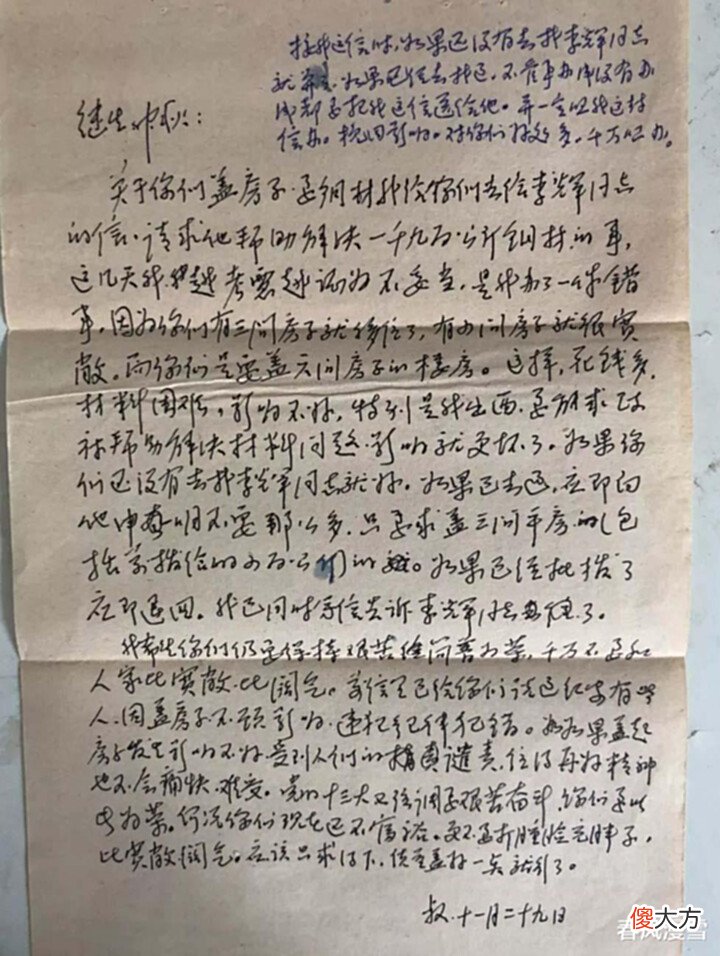 接我这信时，如果还没有去找李光辉同志
就算了。如果已经去找过，不管事办成没有办
成都要把我这信送给他。并一定照我这封
信办。挽回影响。对你们好处多，千万照办。
继生
关于你们盖房子要钢材我给你们去给李光辉同志
的信，请求他帮助解决一千九百公斤钢材的事，
这几天我越考虑越认为不妥当，是我办了一件错
事，因为你们有三间房子就够住了，有四间房子就很宽
敞。而你们是要盖六间房子的楼房。这样，花钱多，
材料困难，影响不好，特别是我出面，要求
帮助解决材料问题，影响就更坏了。如果你
们还没有去找李光辉同志就好。如果已去过，立即向
他申明不要那么多，只要求盖三间平房的（包
括前拨给的四百公斤的）。如果已经批拨了
立即退回。我已同时写信告诉李光辉同志
我希望你们仍要保持艰苦俭简朴为荣，千万不要和
人家比宽敞比阔气。前信里已给你们谈过纪央有些
人，因盖房子不顾影响，违犯纪律犯错。如果盖起
房子发生影响不好，受到人们的指责谴责，住得再好精神
也不会痛快，难受。党的十三大又强调要艰苦奋斗，你们要以
此为荣。何况你们现在还不富裕。更不要打肿脸充胖子，
比宽敞阔气。应该只求住下，质量盖好一点就行了。
叔．十一月二十九日
傻大方
春风漫雪